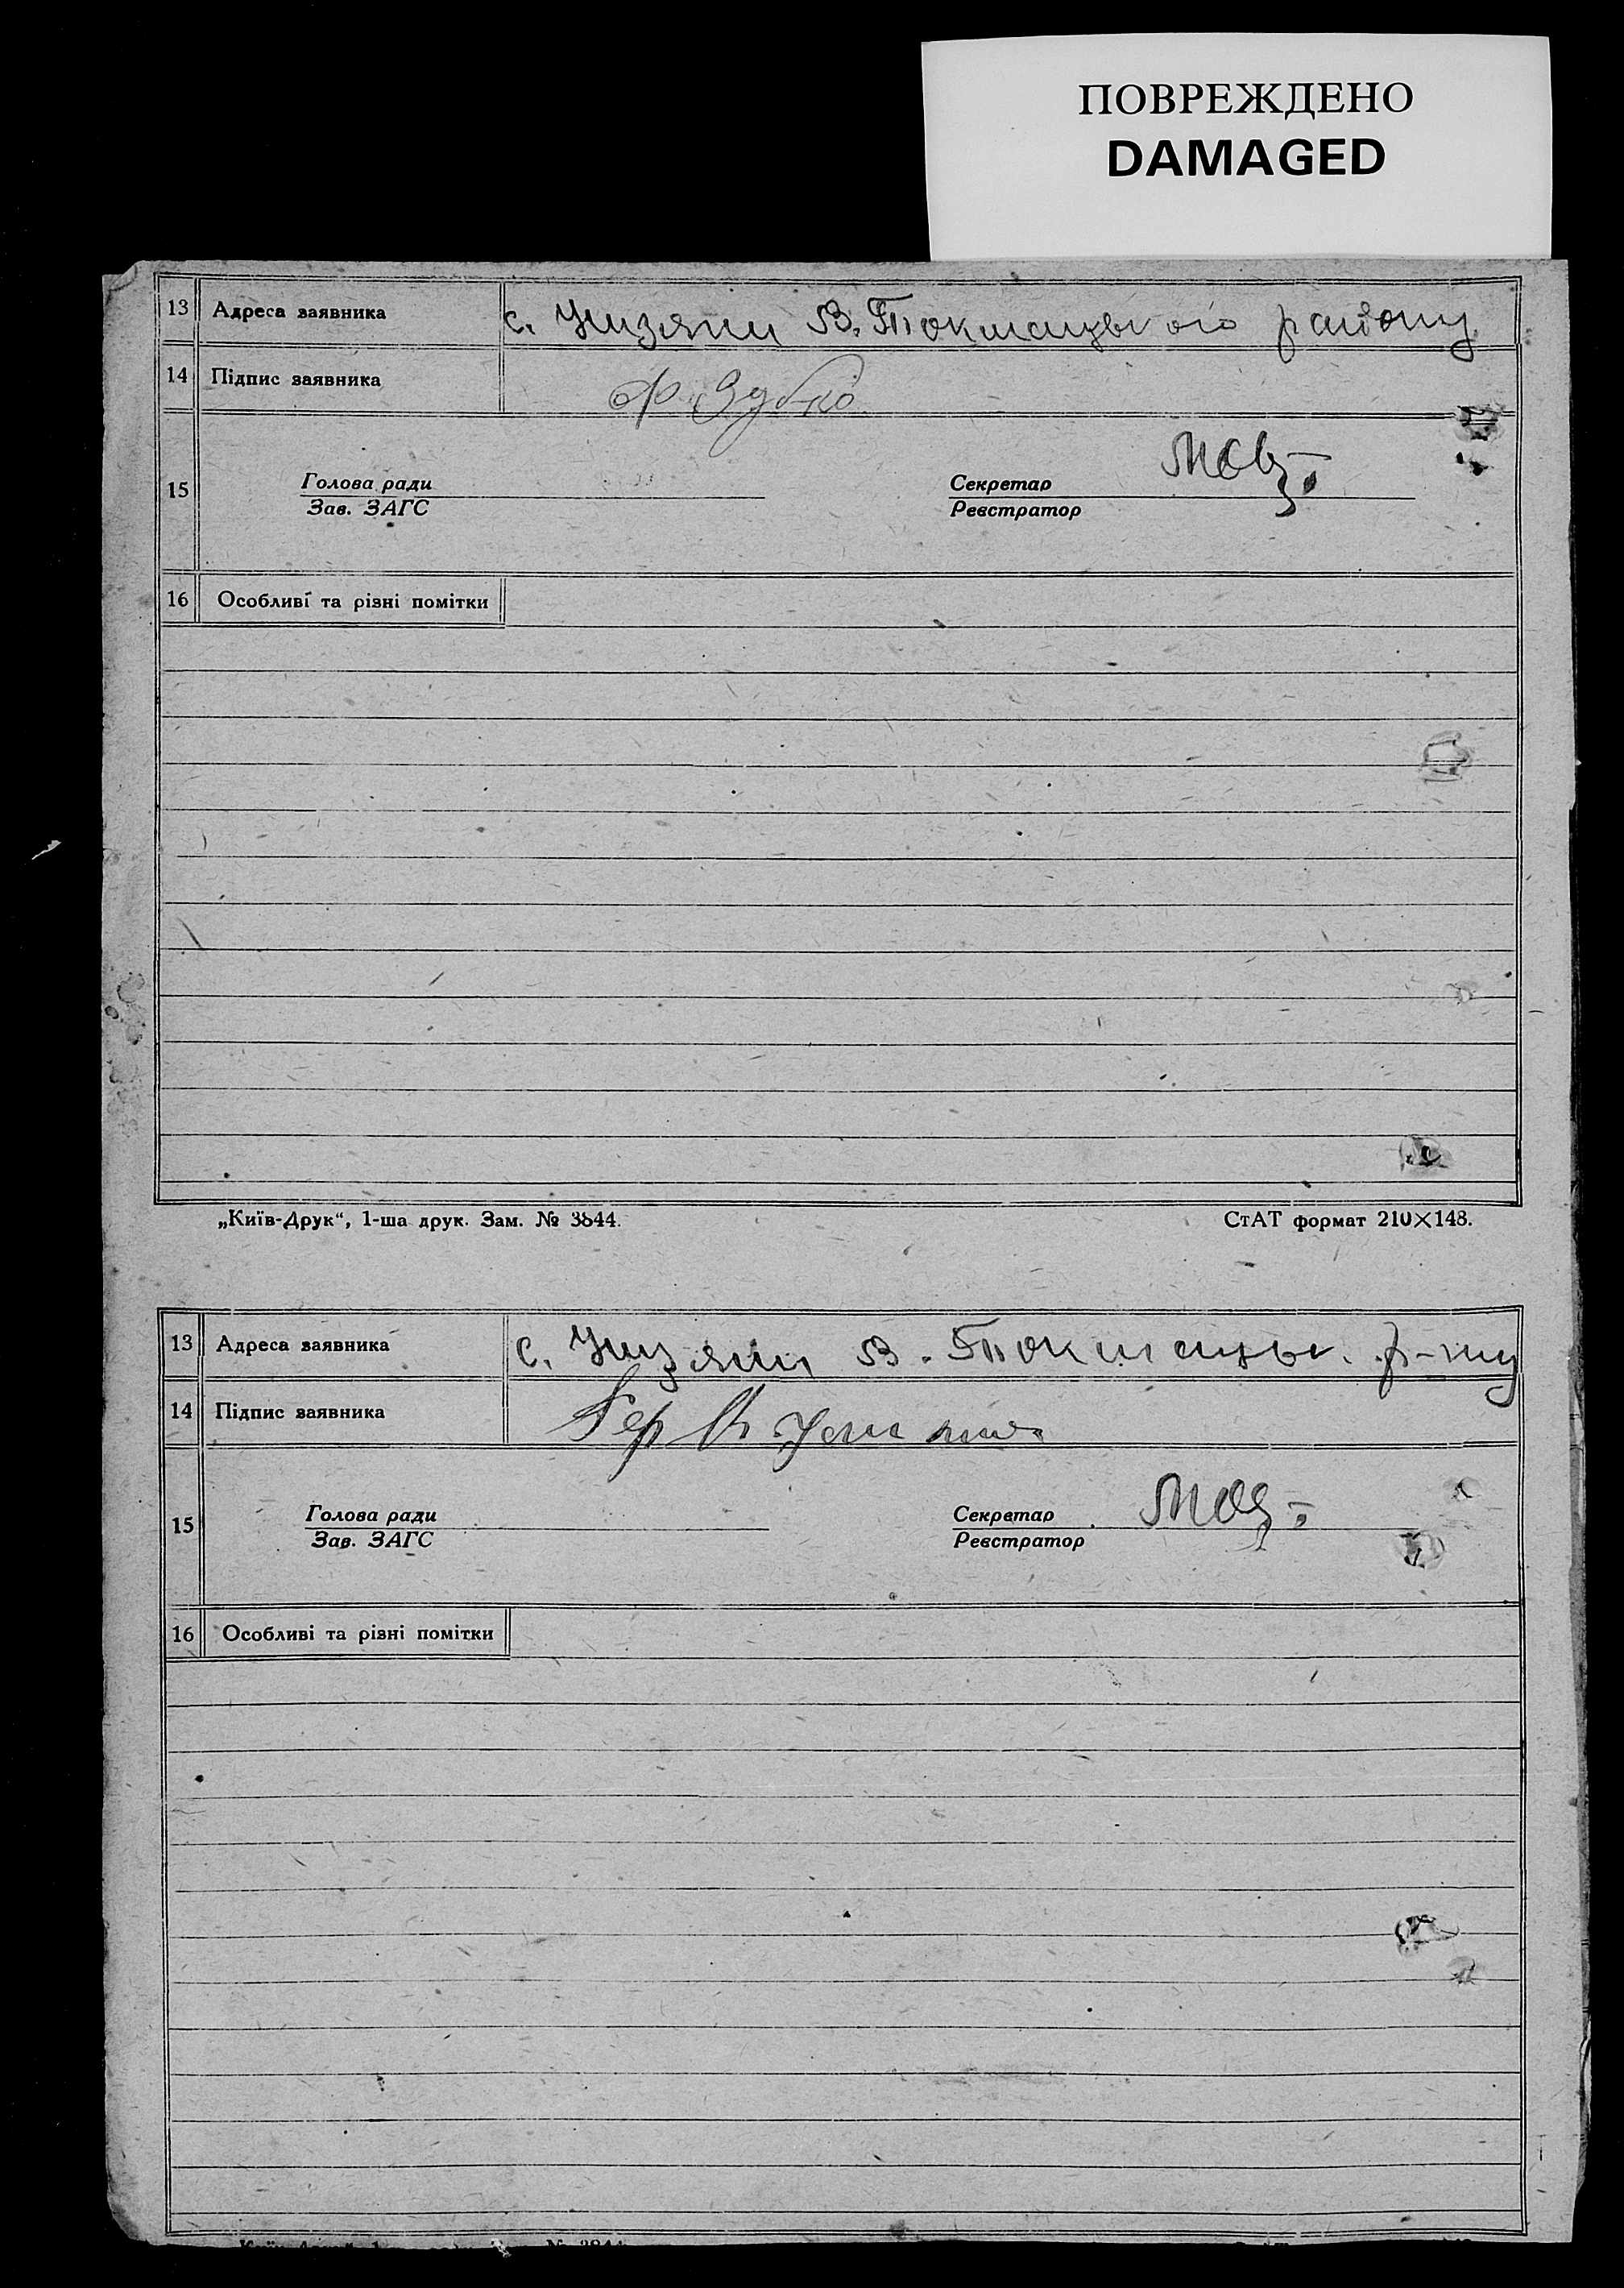 ПОВРЕЖДЕНО
DAMAGED
13 Адреса заявника с. В. Токмацького району
14 Підпис заявника Зубко
Голова ради Секретар
15
Зав. ЗАГС Реєстратор
16 Особливі та різні помітки
„Київ-Друк“, 1-ша друк. Зам. № 3844. СтАТ формат 210×148.
13 Адреса заявника с. В. Токмацьк. р-ну
14 Підпис заявника
Голова ради Секретар
15
Зав. ЗАГС Реєстратор
16 Особливі та різні помітки